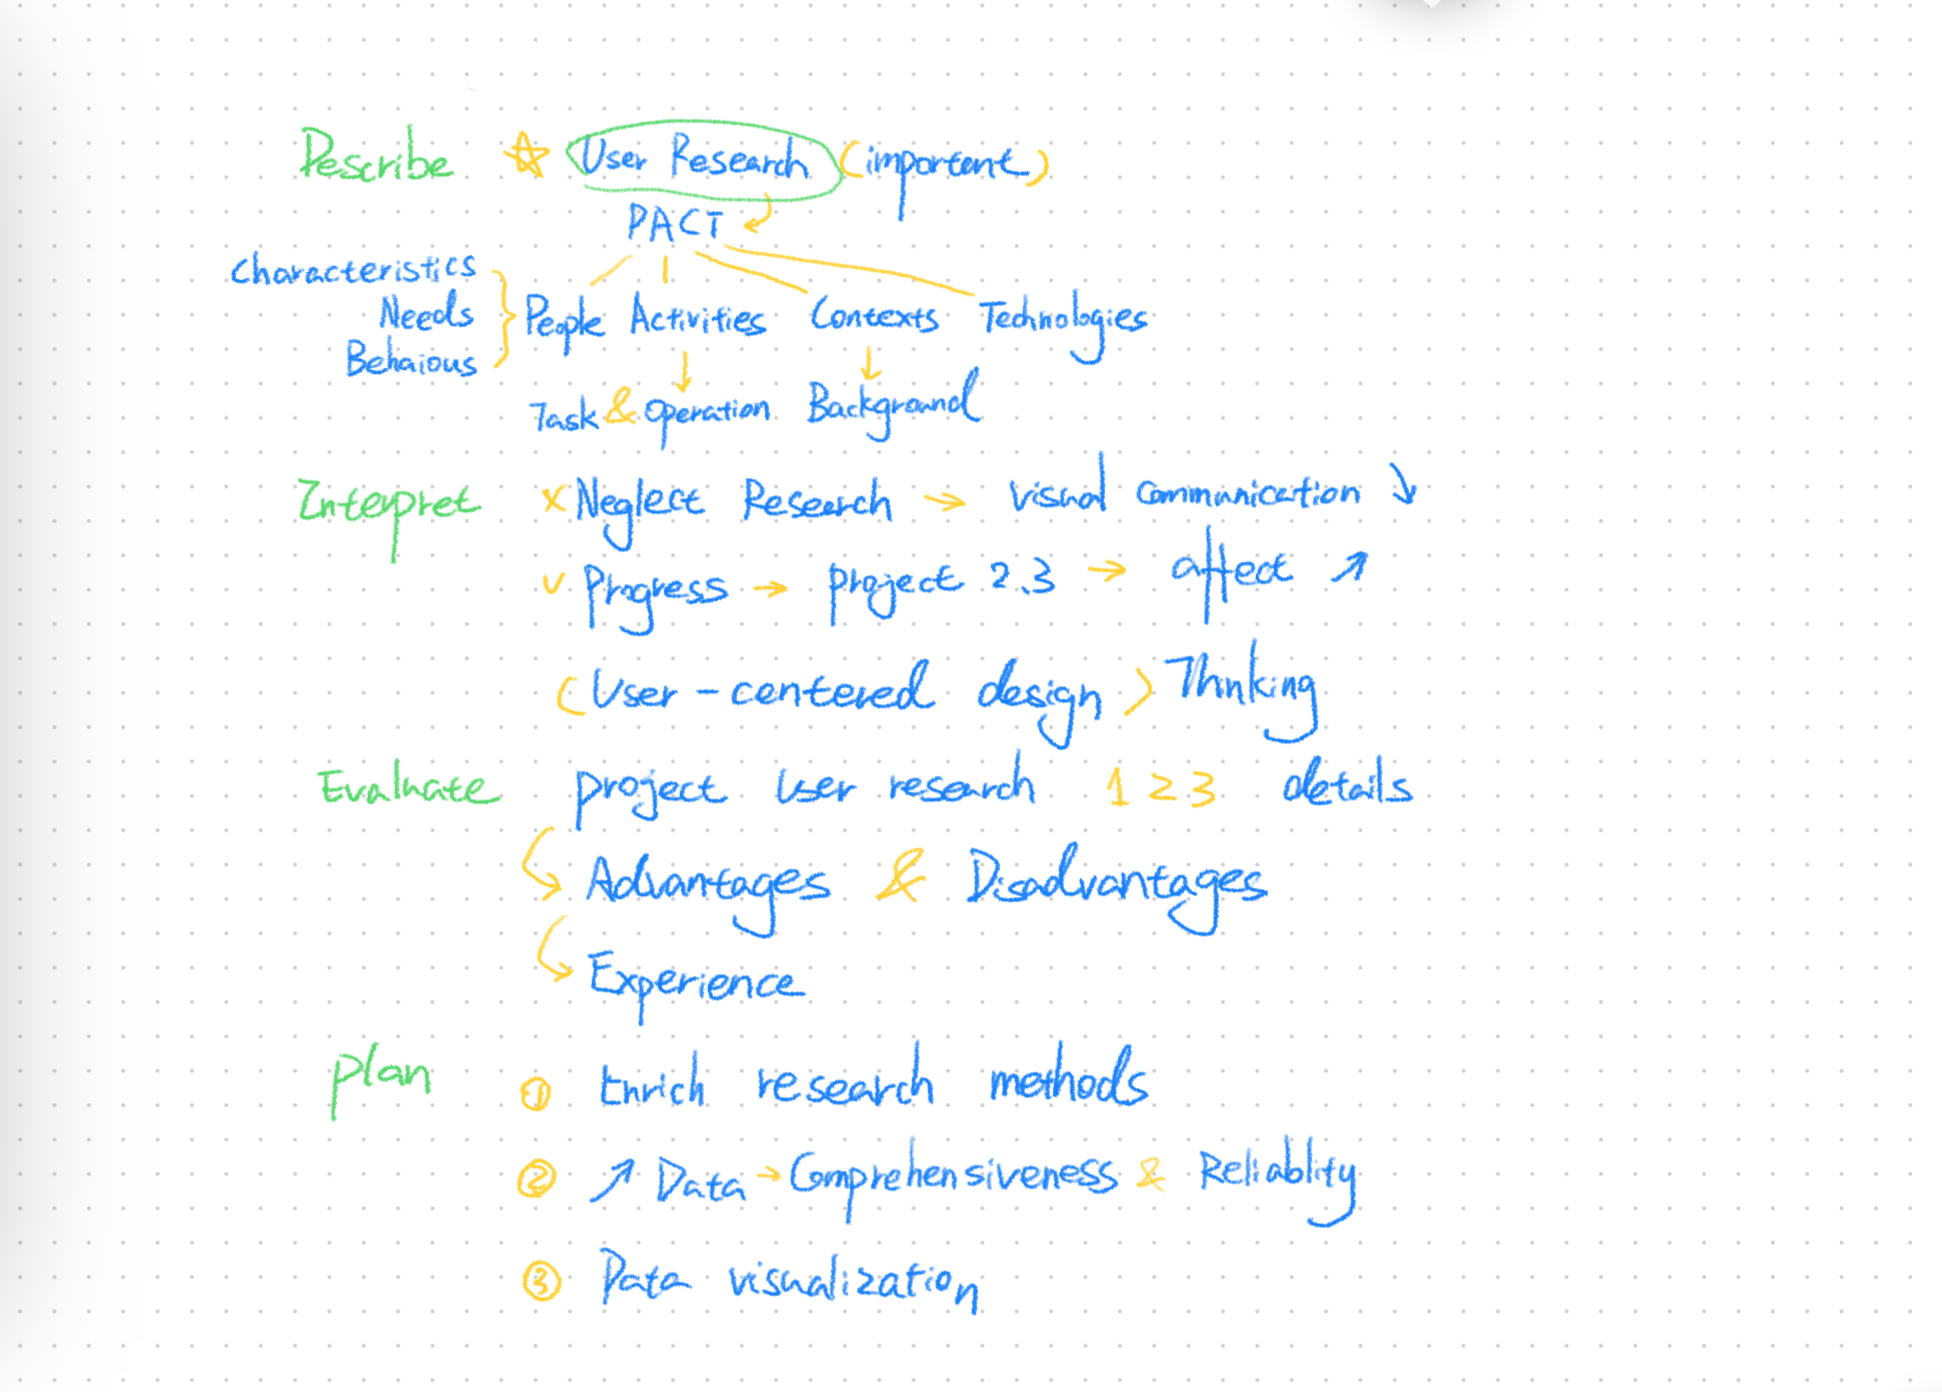 Describe ☆ User Research (important)
PACT
Characteristics
Needs
Behaious
People Activities Contexts Technologies
Task & Operation Background
Interpret × Neglect Research → visual communication ↘
✓ Progress → project 2.3 → affect ↗
(User-centered design) Thnking
Evaluate project User research 1 2 3 details
Advantages & Disadvantages
Experience
plan ① Enrich research methods
② ↗ Data → Comprehensiveness & Reliablity
③ Data visualization